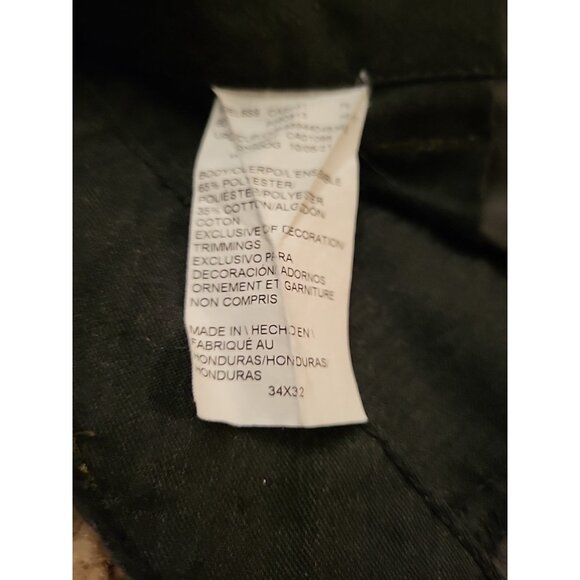 BODY/CUERPO/L'ENSEMBLE
65% POLYESTER/
POLIESTER/POLYESTER
35% COTTON/ALGODON
COTON
EXCLUSIVE OF DECORATION
TRIMMINGS
EXCLUSIVO PARA
DECORACIÓN\ ADORNOS
ORNEMENT ET GARNITURE
NON COMPRIS
MADE IN \ HECHO EN \
FABRIQUÉ AU
HONDURAS/HONDURAS/
HONDURAS
34X32